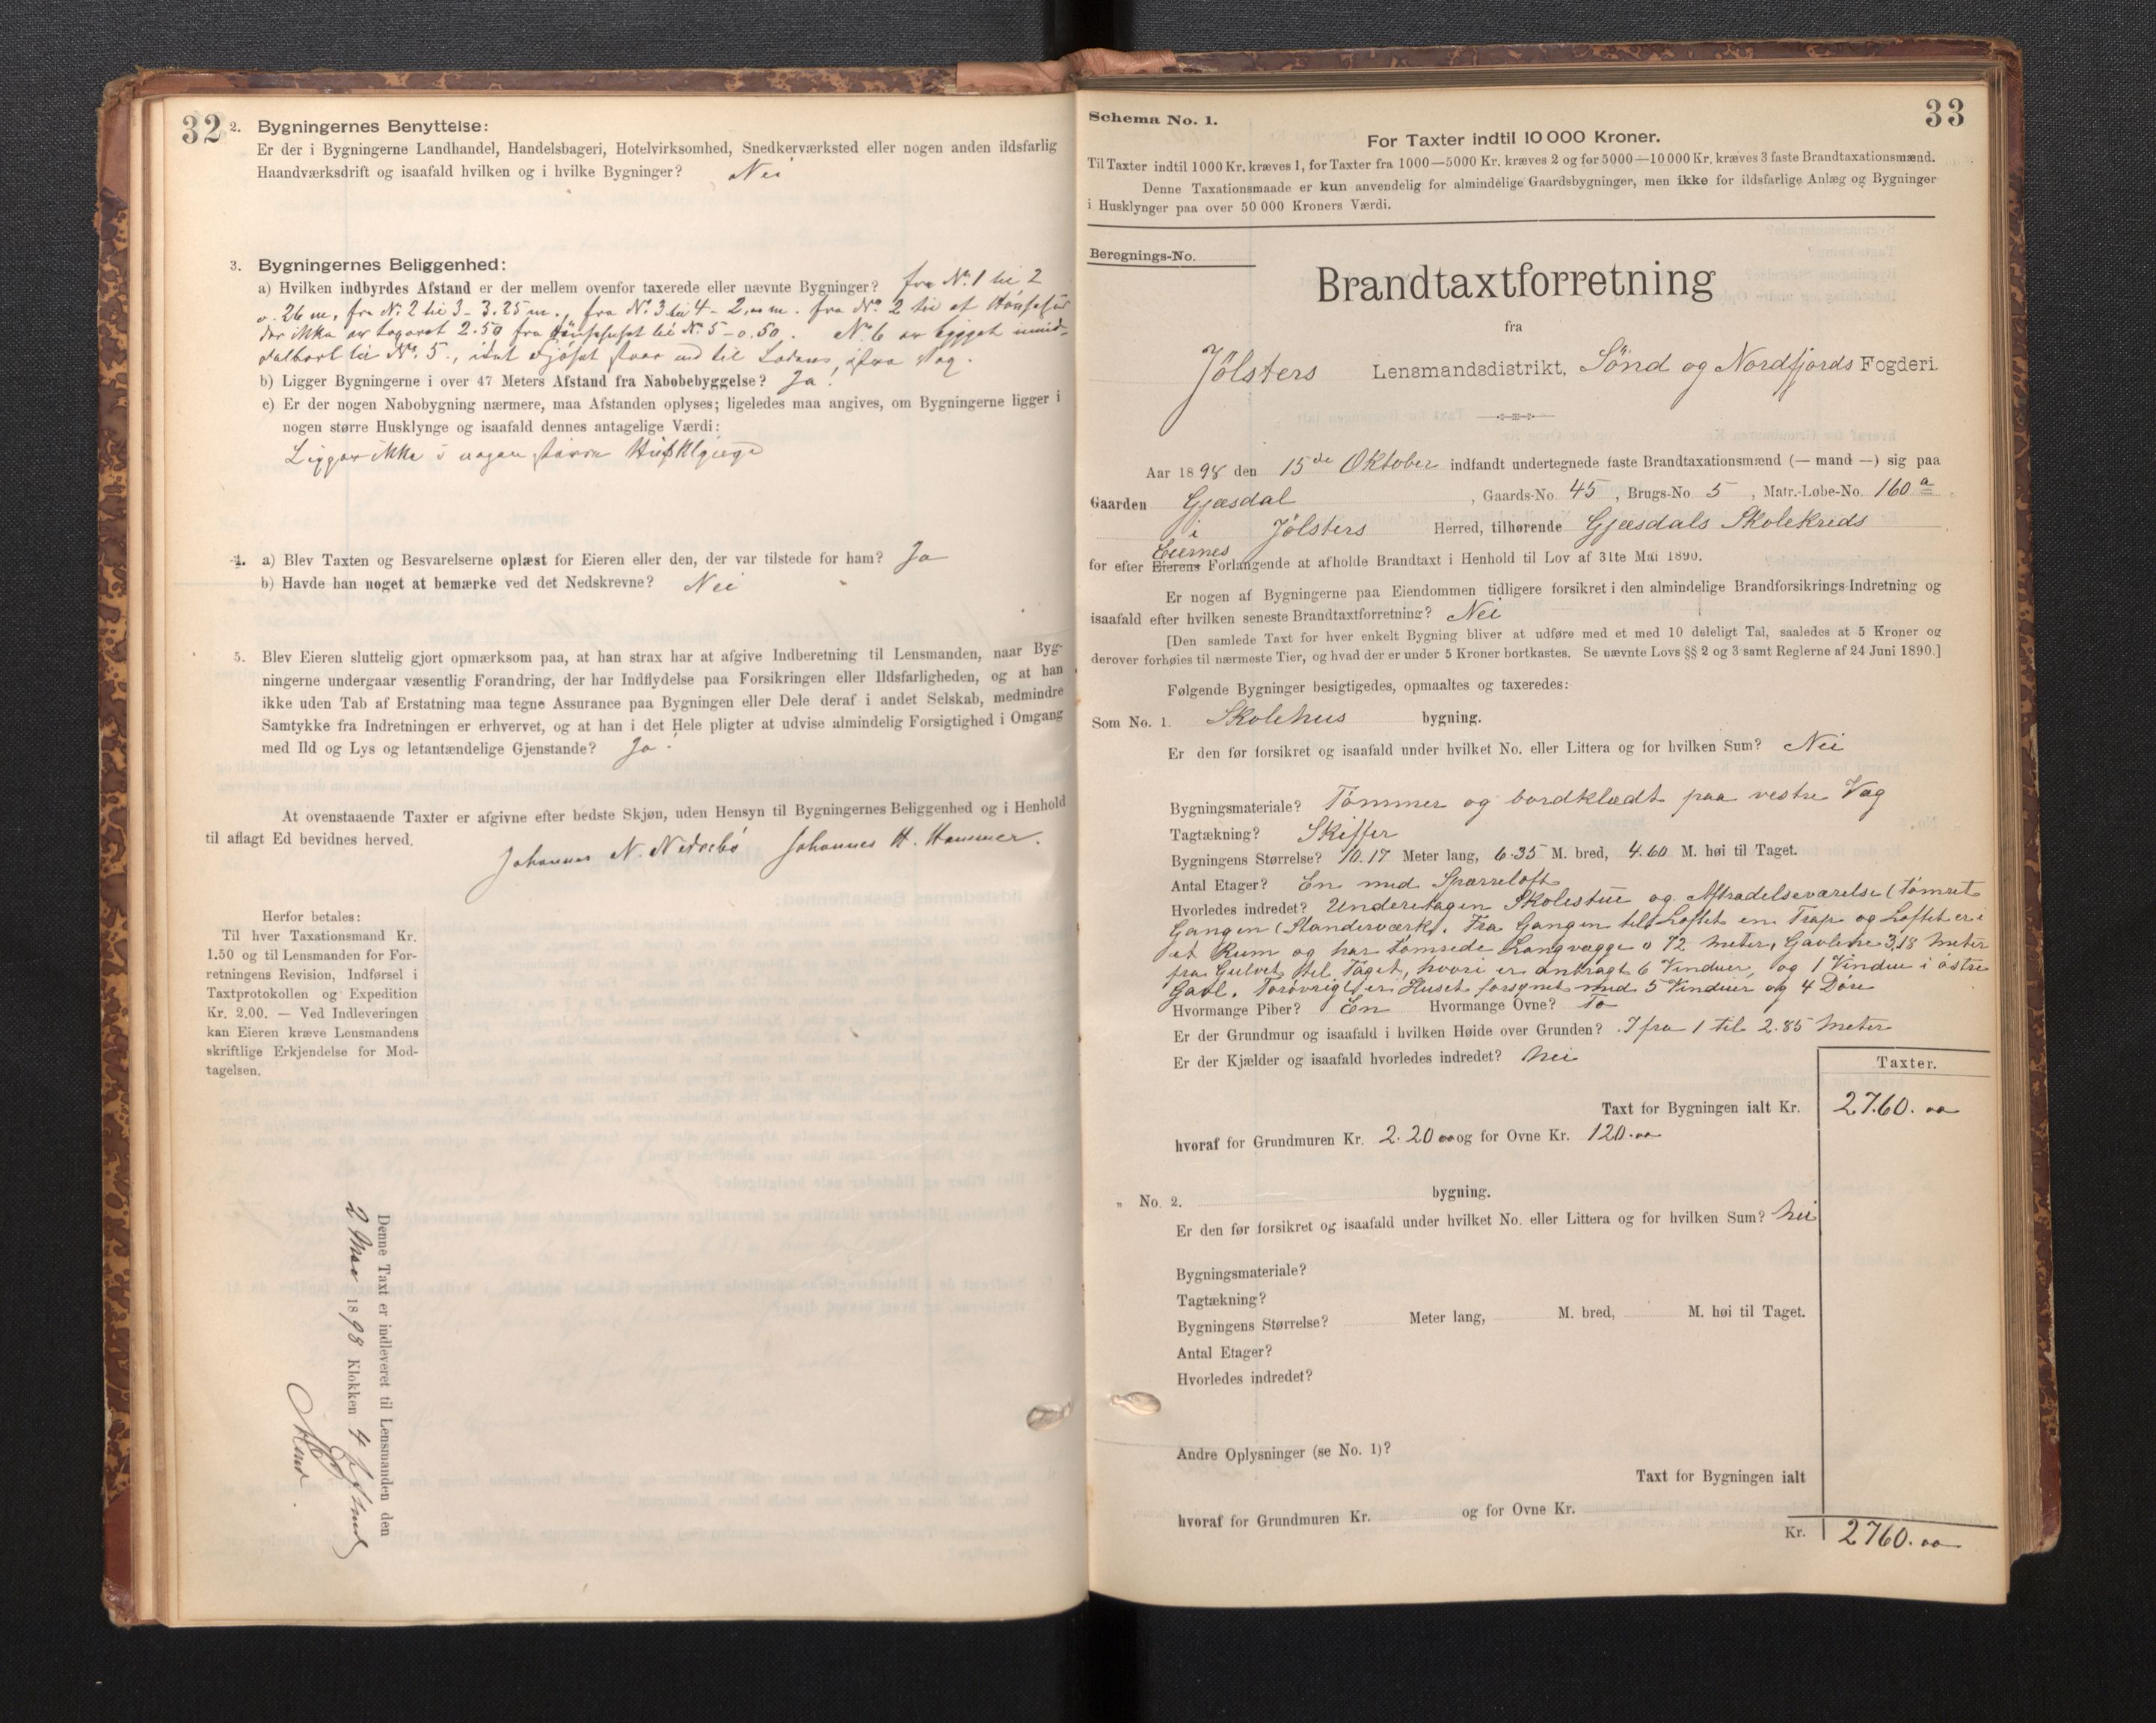 32
2. Bygningernes Benyttelse:
Er der i Bygningerne Landhandel, Handelsbageri, Hotelvirksomhed, Snedkerværksted eller nogen anden ildsfarlig
Haandværksdrift og isaafald hvilken og i hvilke Bygninger? Nei
3. Bygningernes Beliggenhed:
a) Hvilken indbyrdes Afstand er der mellem ovenfor taxerede eller nævnte Bygninger? fra No. 1 til 2
26 m, fra No. 2 til 3 - 3.25 m., fra No. 3 til 4 - 2,00 m. fra No. 2 til et
der ikke er 2.50 fra til No. 5 - 0.50. No. 6 er bygget umid-
delbart til No. 5.,
b) Ligger Bygningerne i over 47 Meters Afstand fra Nabobebyggelse? Ja.
c) Er der nogen Nabobygning nærmere, maa Afstanden oplyses; ligeledes maa angives, om Bygningerne ligger i
nogen større Husklynge og isaafald dennes antagelige Værdi:
Ligger ikke i nogen større Husklynge
4. a) Blev Taxten og Besvarelserne oplæst for Eieren eller den, der var tilstede for ham? Ja
b) Havde han noget at bemærke ved det Nedskrevne? Nei
5. Blev Eieren sluttelig gjort opmærksom paa, at han strax har at afgive Indberetning til Lensmanden, naar Byg-
ningerne undergaar væsentlig Forandring, der har Indflydelse paa Forsikringen eller Ildsfarligheden, og at han
ikke uden Tab af Erstatning maa tegne Assurance paa Bygningen eller Dele deraf i andet Selskab, medmindre
Samtykke fra Indretningen er erhvervet, og at han i det Hele pligter at udvise almindelig Forsigtighed i Omgang
med Ild og Lys og letantændelige Gjenstande? Ja.
At ovenstaaende Taxter er afgivne efter bedste Skjøn, uden Hensyn til Bygningernes Beliggenhed og i Henhold
til aflagt Ed bevidnes herved.
Johannes N. Nedrebø Johannes H. Hammer.
Herfor betales:
Til hver Taxationsmand Kr.
1.50 og til Lensmanden for For-
retningens Revision, Indførsel i
Taxtprotokollen og Expedition
Kr. 2.00. — Ved Indleveringen
kan Eieren kræve Lensmandens
skriftlige Erkjendelse for Mod-
tagelsen.
Denne Taxt er indleveret til Lensmanden den
2 1898 Klokken 4
33
Schema No. 1.
For Taxter indtil 10 000 Kroner.
Til Taxter indtil 1000 Kr. kræves 1, for Taxter fra 1000—5000 Kr. kræves 2 og for 5000—10 000 Kr. kræves 3 faste Brandtaxationsmænd.
Denne Taxationsmaade er kun anvendelig for almindelige Gaardsbygninger, men ikke for ildsfarlige Anlæg og Bygninger
i Husklynger paa over 50 000 Kroners Værdi.
Beregnings-No.
Brandtaxtforretning
fra
Jølsters Lensmandsdistrikt, Sønd og Nordfjords Fogderi.
Aar 1898 den 15de Oktober indfandt undertegnede faste Brandtaxationsmænd (— mand —) sig paa
Gaarden Gjæsdal, Gaards-No. 45, Brugs-No. 5, Matr.-Løbe-No. 160 a
i Jølsters Herred, tilhørende Gjæsdals Skolekreds
Eiernes
for efter Eierens Forlangende at afholde Brandtaxt i Henhold til Lov af 31te Mai 1890.
Er nogen af Bygningerne paa Eiendommen tidligere forsikret i den almindelige Brandforsikrings-Indretning og
isaafald efter hvilken seneste Brandtaxtforretning? Nei
[Den samlede Taxt for hver enkelt Bygning bliver at udføre med et med 10 deleligt Tal, saaledes at 5 Kroner og
derover forhøies til nærmeste Tier, og hvad der er under 5 Kroner bortkastes. Se nævnte Lovs §§ 2 og 3 samt Reglerne af 24 Juni 1890.]
Følgende Bygninger besigtigedes, opmaaltes og taxeredes:
Som No. 1. Skolehus bygning.
Er den før forsikret og isaafald under hvilket No. eller Littera og for hvilken Sum? Nei
Bygningsmateriale? Tømmer og bordklædt paa vestre Væg
Tagtækning? Skiffer
Bygningens Størrelse? 10.17 Meter lang, 6.35 M. bred, 4.60 M. høi til Taget.
Antal Etager? En med Sparreloft
Hvorledes indredet? Underetagen Skolestue og Aftrædelsesværelse (tømret
Gangen (Standerværk). Fra Gangen til Loftet en Trap og Loftet er i
et Rum og har tømrede Langvægge 0 72 Meter, Gavlene 3,18 Meter
fra Gulvet til Taget, hvori er anbragt 6 Vinduer, og 1 Vindue i østre
Gavl. Forøvrigt er Huset forsynet med 5 Vinduer og 4 Døre
Hvormange Piber? En Hvormange Ovne? To
Er der Grundmur og isaafald i hvilken Høide over Grunden? Ifra 1 til 2.85 Meter
Er der Kjælder og isaafald hvorledes indredet? Nei
Taxter.
Taxt for Bygningen ialt Kr. 2760.00
hvoraf for Grundmuren Kr. 2.20 00 og for Ovne Kr. 120.00
" No. 2. bygning.
Er den før forsikret og isaafald under hvilket No. eller Littera og for hvilken Sum? Nei
Bygningsmateriale?
Tagtækning?
Bygningens Størrelse? Meter lang, M. bred, M. høi til Taget.
Antal Etager?
Hvorledes indredet?
Andre Oplysninger (se No. 1)?
Taxt for Bygningen ialt
hvoraf for Grundmuren Kr. og for Ovne Kr.
Kr. 2760.00